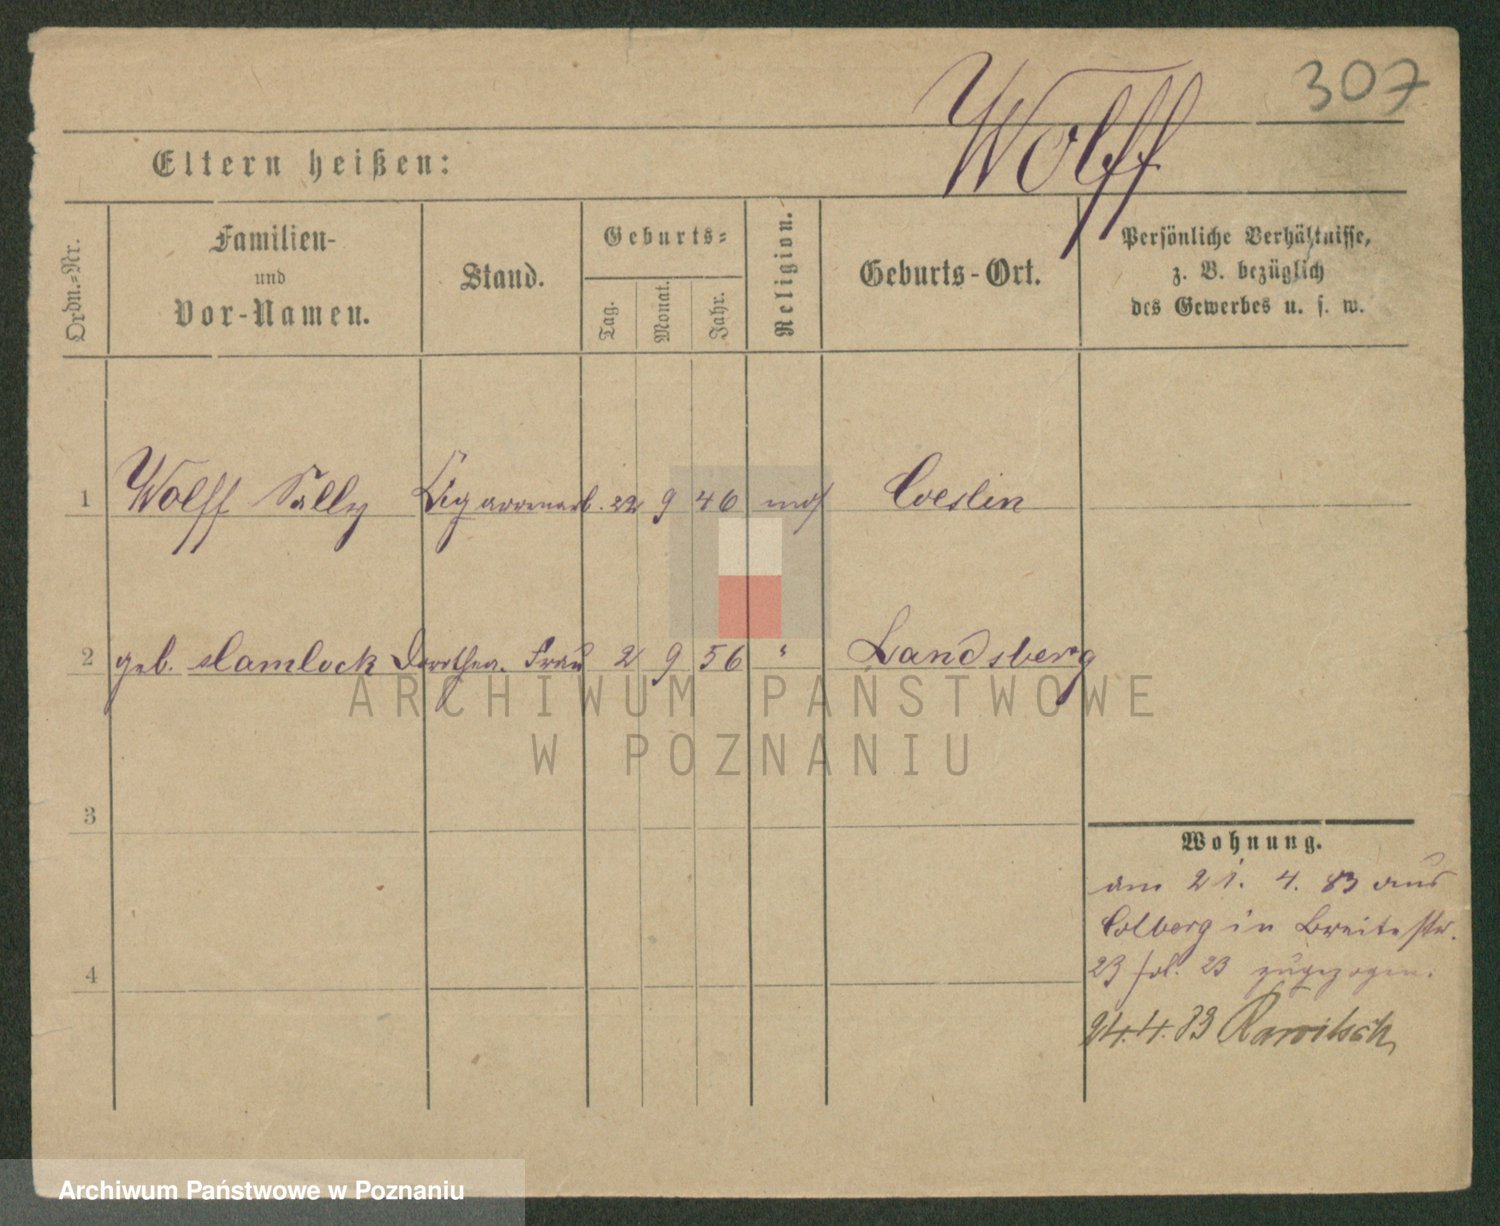 307
Wolff
Eltern heißen:
Ordn.-Nr.
Familien-
und
Vor-Namen.
Stand.
Geburts-
Tag.
Monat.
Jahr.
Religion.
Geburts-Ort.
Persönliche Verhältnisse,
z. B. bezüglich
des Gewerbes u. s. w.
1 Wolff Sally Cigarrenarb. 22 9 46 mos Coeslin
2 geb. Hamlock Dorothea. Frau 2 9 56 " Landsberg
ARCHIWUM PAŃSTWOWE
W POZNANIU
3
Wohnung.
am 21. 4. 83 aus
Colberg in Breitestr.
23 fol. 23 zugezogen.
4
24.4.83 Rawitsch
Archiwum Państwowe w Poznaniu